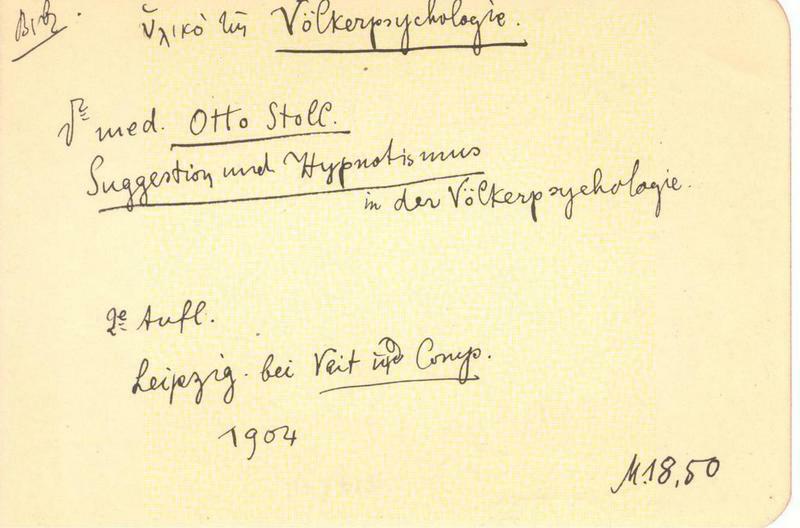 Βιβλ. ὑλικὸ τῆς Völkerpsychologie.
Dr med. Otto Stoll.
Suggestion und Hypnotismus
in der Völkerpsychologie.
2e Aufl.
Leipzig. bei Veit und Comp.
1904
M.18,50